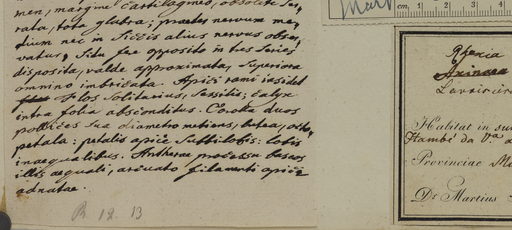 men, margine cartilagineo, obsolete Ser-
rata, tota glabra; praeter nervum me-
dium nec in Siccis alius nervus obser-
vatus, Situ fere opposito in tres Series
disposita, valde approximata, Superiora
omnino imbricata. Apici rami insidet
Flos Solitarius, Sessilis; calyx
intra folia absconditus. Corolla duos
pollices Sua diametro metiens, lutea, octo-
petala: petalis apice Subbilobis: lobis
inaequalibus. Antherae processu baseos
illis aequali, arcuato filamenti apice
adnatae.
R 18. 13
Mart
cm 1 2 3 4
Rhexia
Lavoisier
Habitat in
Itambé da Va
Provinciae
Dr Martius